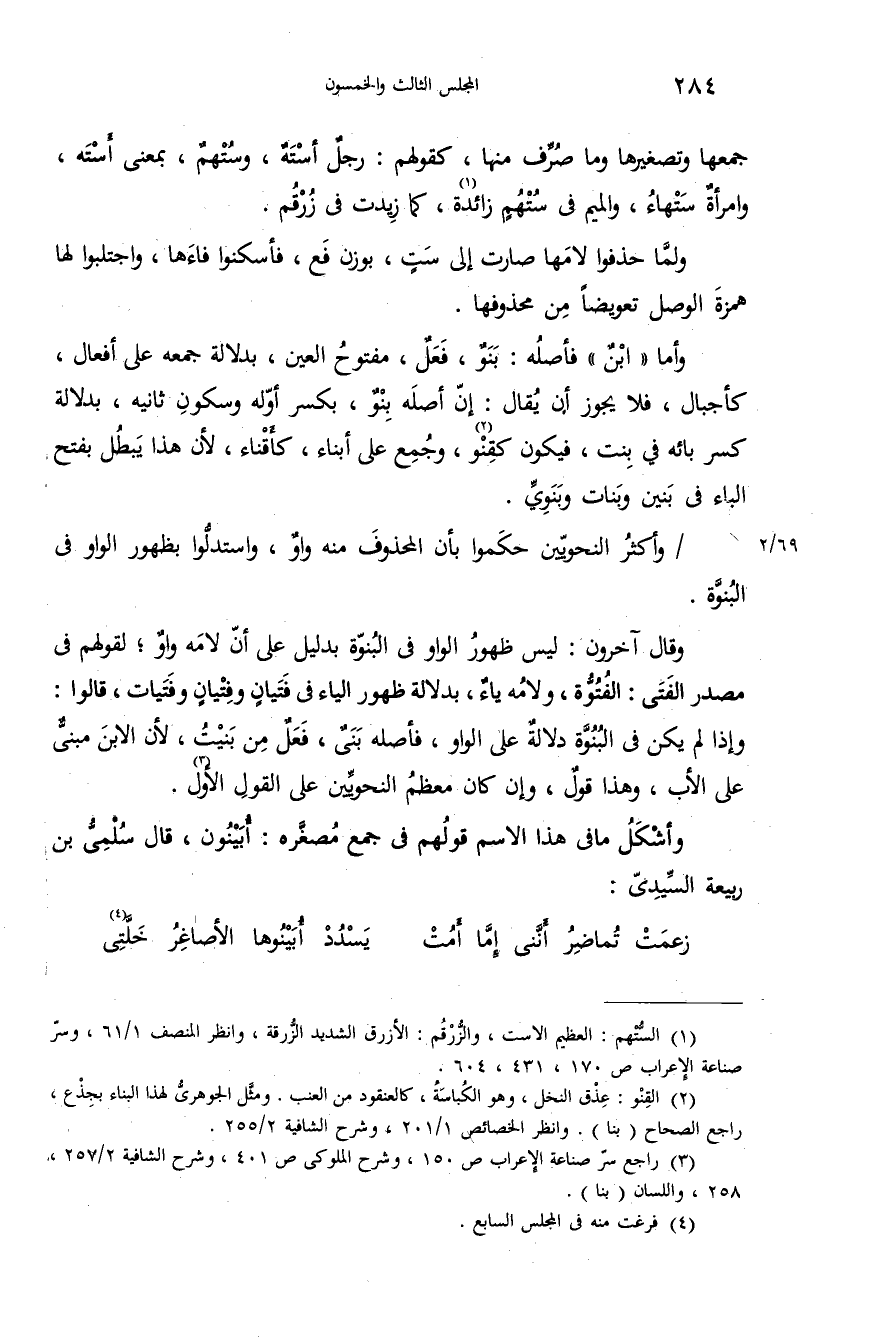 ٢٨٤ المجلس الثالث والخمسون
جمعها وتصغيرها وما صُرِّف منها ، كقولهم : رجلٌ أسْتَهٌ ، وسُتْهمٌ ، بمعنى أَسْتَه ،
وامرأةٌ سَتْهاءُ ، والميم فى سُتْهُمٍ زائدة(١) ، كما زِيدت فى زُرْقُم .
ولمَّا حذفوا لامَها صارت إلى سَتٍ ، بوزن فَع ، فأسكنوا فاءَها ، واجتلبوا لها
همزةَ الوصل تعويضاً مِن محذوفها .
وأما « ابْنٌ » فأصلُه : بَنَوٌ ، فَعَلٌ ، مفتوحُ العين ، بدلالة جمعه على أفعال ،
كأجبال ، فلا يجوز أن يُقال : إنّ أصلَه بِنْوٌ ، بكسر أوّله وسكونِ ثانيه ، بدلالة
كسر بائه في بِنت ، فيكون كقِنْو(٢) ، وجُمِع على أبناء ، كأَقْناء ، لأن هذا يَبطُل بفتح
الباء فى بَنين وبَنات وبَنَوِيٍّ .
٢/٦٩ / وأكثرُ النحويّين حكَموا بأن المحذوفَ منه واوٌ ، واستدلُّوا بظهور الواو فى
البُنوَّة .
وقال آخرون : ليس ظهورُ الواو فى البُنوّة بدليل على أنّ لامَه واوٌ ؛ لقولهم فى
مصدر الفَتَى : الفُتُوُّة ، ولامُه ياءٌ ، بدلالة ظهور الياء فى فَتَيانٍ وفِتْيانٍ وفَتَيات ، قالوا :
وإذا لم يكن فى البُنُوَّة دلالةٌ على الواو ، فأصله بَنَىٌ ، فَعَلٌ مِن بَنيْتُ ، لأن الابنَ مبنىٌّ
على الأب ، وهذا قولٌ ، وإن كان معظمُ النحويِّين على القولِ الأوَّل(٣) .
وأشْكَلُ مافى هذا الاسم قولُهم فى جمع مُصغَّره : أُبَيْنُون ، قال سُلْمِىُّ بن
ربيعة السِّيدِىّ :
زعمَتْ تُماضِرُ أَنَّنى إمَّا أَمُتْ يَسْدُدْ أُبَيْنُوها الأصاغِرُ خَلَّتِى(٤)
(١) السُّتْهم : العظيم الاست ، والزُّرْقُم : الأزرق الشديد الزُّرقة ، وانظر المنصف ٦١/١ ، وسرّ
صناعة الإعراب ص ١٧٠ ، ٤٣١ ، ٦٠٤ .
(٢) القِنْو : عِذْق النخل ، وهو الكُباسَةُ ، كالعنقود من العنب . ومثَّل الجوهرىُّ لهذا البناء بجِذْع ،
راجع الصحاح ( بنا ) . وانظر الخصائص ٢٠١/١ ، وشرح الشافية ٢٥٥/٢ .
(٣) راجع سرّ صناعة الإعراب ص ١٥٠ ، وشرح الملوكى ص ٤٠١ ، وشرح الشافية ٢٥٧/٢ ،
٢٥٨ ، واللسان ( بنا ) .
(٤) فرغت منه فى المجلس السابع .